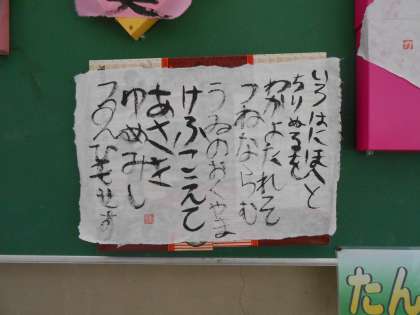 いろはにほへと
ちりぬるを
わかよたれそ
つねならむ
うゐのおくやま
けふこえて
あさき
ゆめみし
たん